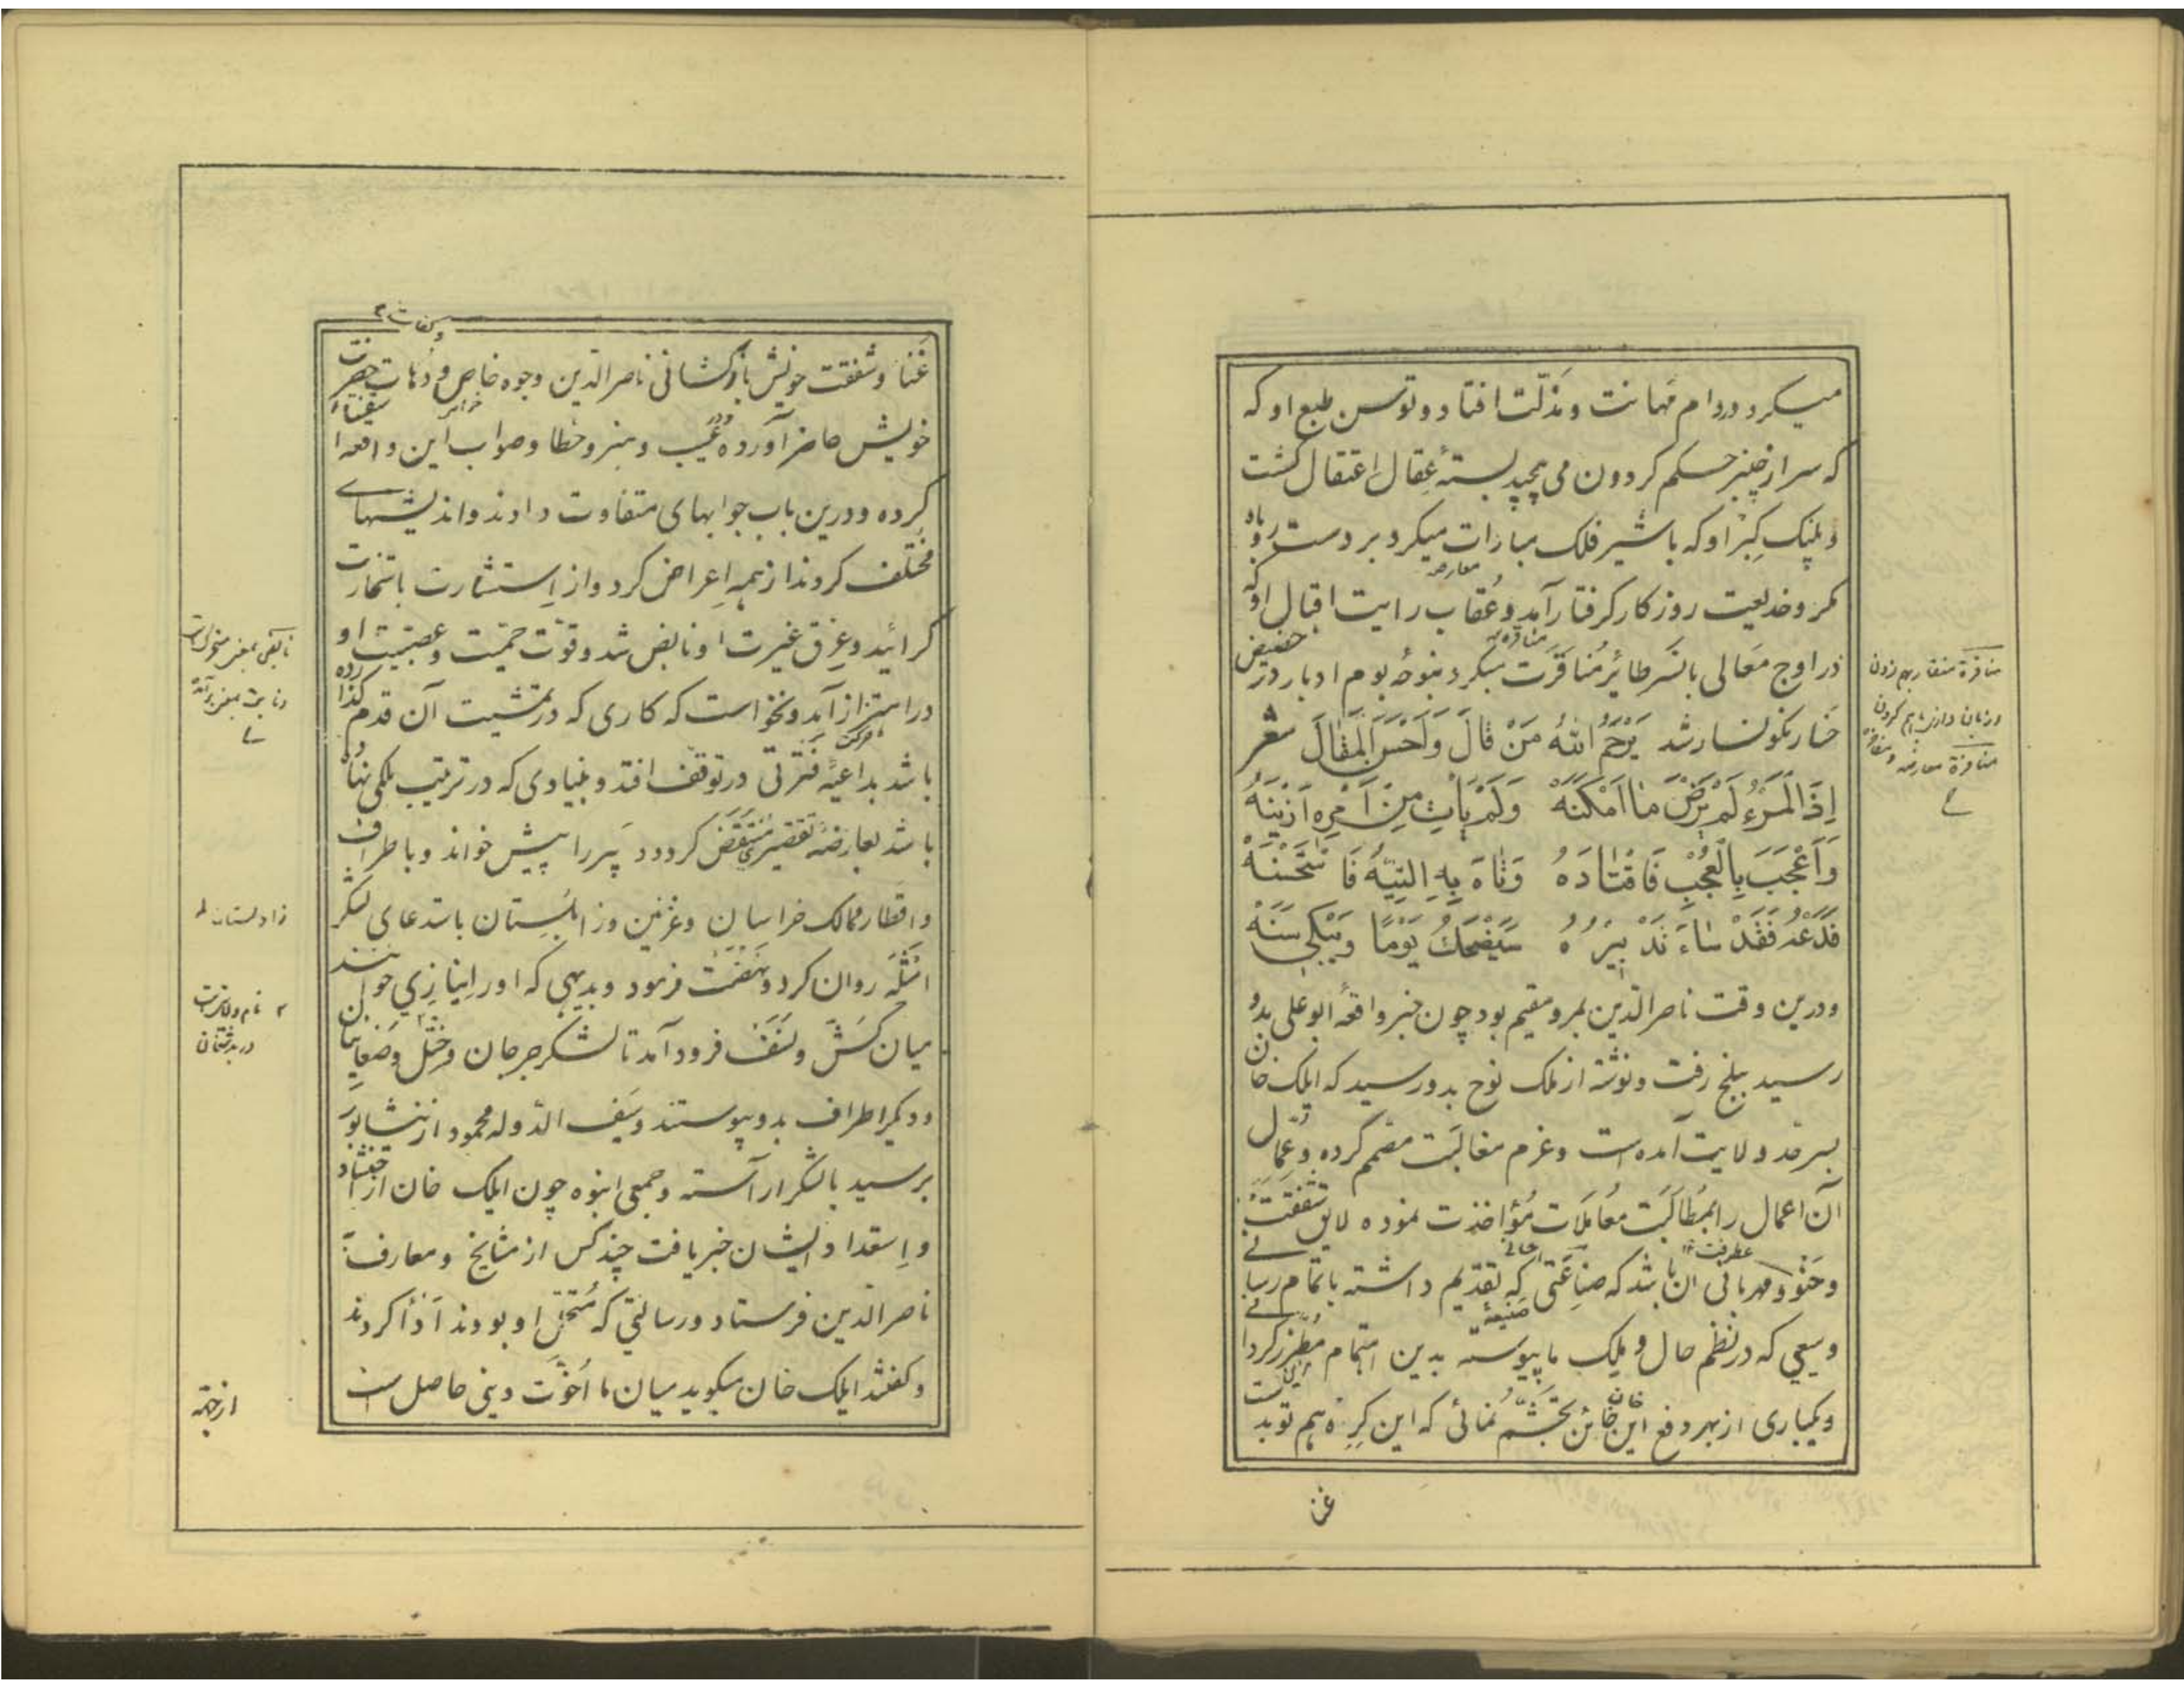 میکرد در دام مهانت و مذلّت افتاد و توسن طبع او که
که سر از چنبر حکم گردون می پیچید بستهٔ عِقال اعتقال گشت
و پلنگ کِبْر او که با شیر فلک مبارات میکرد بر دست روباه
معارضه
مکر و خدیعت روزگار گرفتار آمد و عُقاب رایت اقبال او که
در اوج مَعالی با نَسر طائر مُناقرت میکرد بنوحهٔ بوم ادبار در حضیض
خسار نگونسار شد یَرْحَمُ اللهُ مَنْ قالَ وَاَحْسَنَ المَقالَ شعر
اِذَا الْمَرْءُ لَمْ یَرْضَ ما اَمْکَنَهْ وَلَمْ یَأْتِ مِنْ اَمْرِهِ اَزْیَنَهْ
وَاَعْجَبَ بِالْعُجْبِ فَاقْتادَهُ وَتاهَ بِهِ التِّیهُ فَاسْتَحْسَنَهْ
فَدَعْهُ فَقَدْ ساءَ تَدْبِیرُهُ سَیَضْحَكُ یَوْمًا وَیَبْکِی سَنَهْ
و درین وقت ناصر الدین بمرو مقیم بود چون خبر واقعهٔ ابو علی بدو
رسید ببلخ رفت و نوشته از ملک نوح بدو رسید که ایلک خان
بسرحد ولایت آمده است و عزم مغالَبت مصمّم کرده و عُمّال
آن اعمال را بمُطالَبت مُعامَلات مُؤاخذت نموده لایق شفقت
و حُنُوّ و مهربانی آن باشد که صناعتی که تقدیم داشته باتمام رسانی
صَنیعهٔ
و سعیی که در نظم حال و ملک ما پیوسته بدین اهتمام مُطرّز گردانی
و یکباری از بهر دفع این خائن تجشّم نمائی که این کرّه هم توبد
غنا
مناقرة منقار بهم زدن
غَنا و شفقت خویش بازگشائی ناصر الدین وجوه خاص و دُهات حضرت
خویش حاضر آورده و در عَیب و هنر و خطا و صواب این واقعه
کرده و درین باب جوابهای متفاوت دادند و اندیشهای
مُختلف کردند از همه اِعراض کرد و از اِستشارت باستخارت
گرائید و عِرق غیرت او نابض شد و قوّت حمیّت و عصبیّت او
در اهتزاز آمد و نخواست که کاری که در تمشیت آن قدم گذارده
باشد بداعیهٔ فَتْرتی در توقف افتد و بنیادی که در ترتیب ملکی نهاده
باشد بعارضهٔ تقصیری مُنتقَض گردد دبیر را پیش خواند و باطراف
و اقطار ممالک خراسان و غزنین و زابلستان باستدعای لشکر
امْثِلَه روان کرد و نهضت فرمود و بدیهی که او را نیازی خوانند
میان کَشّ و نَسَف فرود آمد تا لشکر جرجان و خُتّل و صَغانیان
و دیگر اطراف بدو پیوستند و سَیف الدّوله محمود از نیشابور
برسید با لشکر آراسته و جمعی انبوه چون ایلک خان از احتشاد
و اِستعداد ایشان خبر یافت چند کس از مشایخ و معارف
ناصر الدین فرستاد و رسالتی که مُتحمّل او بودند اَدا کردند
و گفتند ایلک خان میگوید میان ما اُخوّت دینی حاصل است
نام ولایتیست
در بدخشان
از جهة